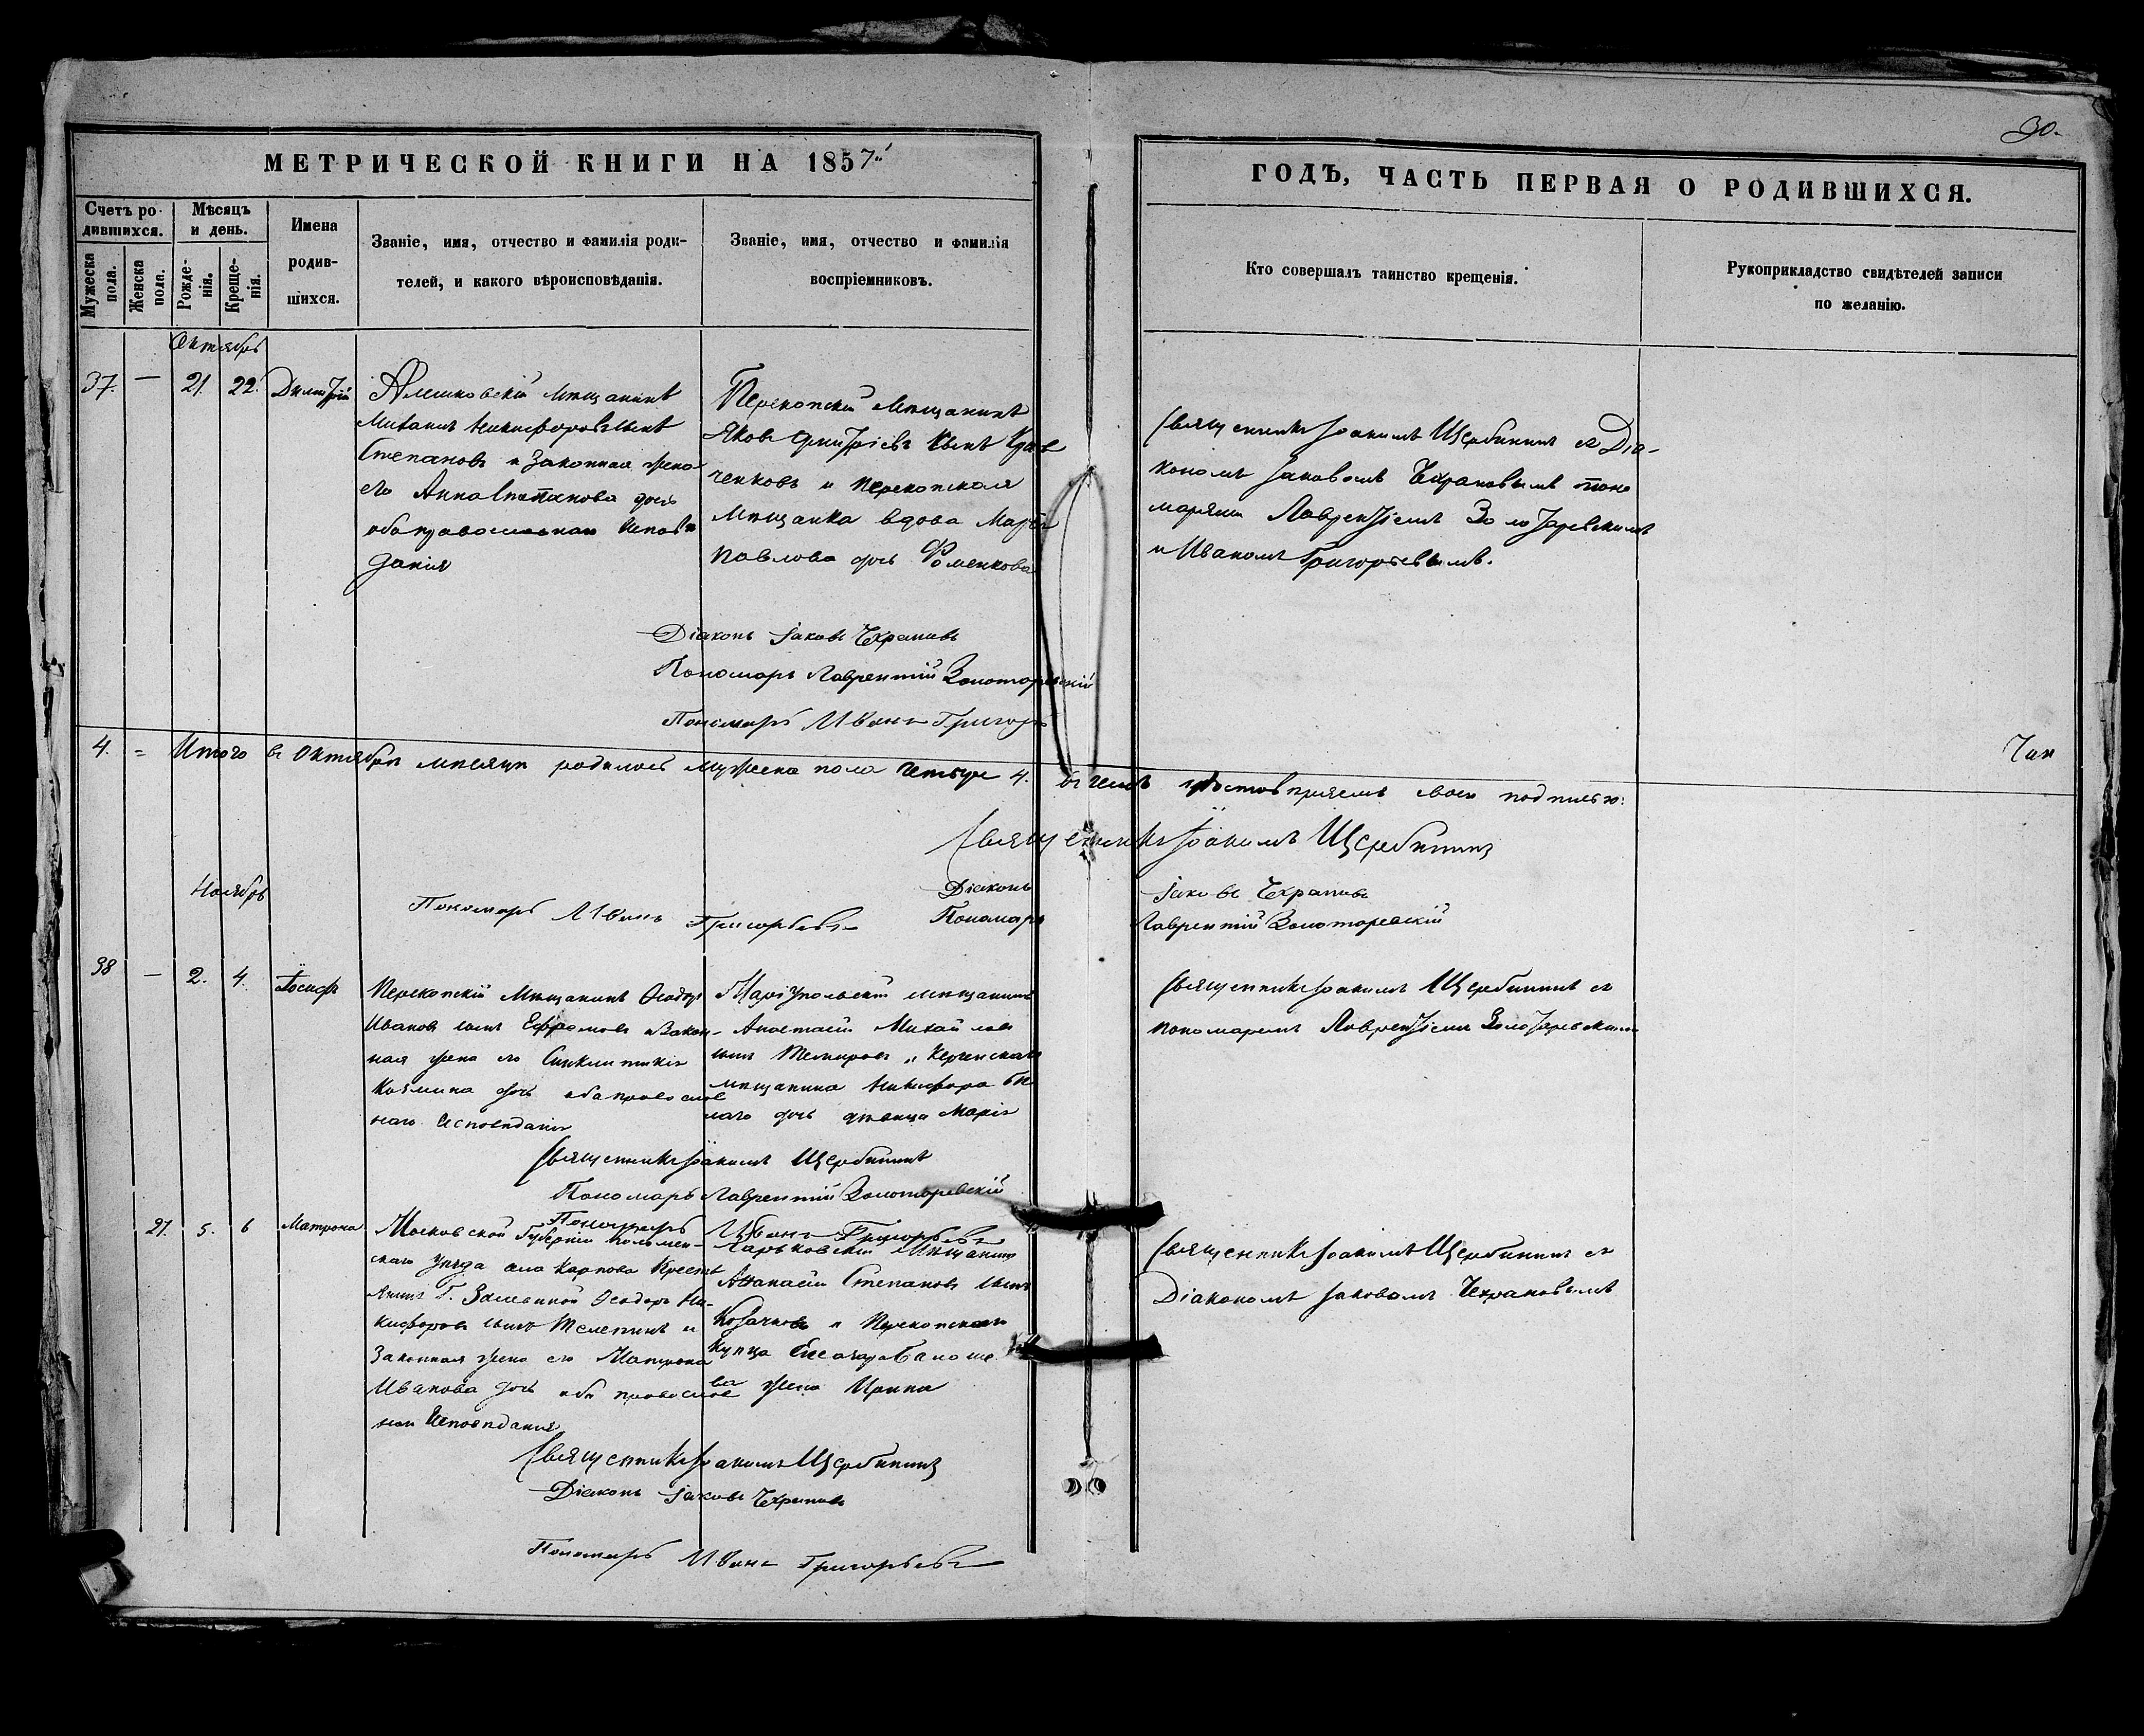 30.
МЕТРИЧЕСКОЙ КНИГИ НА 1857й
ГОДЪ, ЧАСТЬ ПЕРВАЯ О РОДИВШИХСЯ.
Счетъ ро-
дившихся.
Мужеска пола.
Женска пола.
Мѣсяцъ
и день.
Рожде-
нія.
Креще-
нія.
Имена
родив-
шихся.
Званіе, имя, отчество и фамилія роди-
телей, и какого вѣроисповѣданія.
Званіе, имя, отчество и фамилія
воспріемниковъ.
Кто совершалъ таинство крещенія.
Рукоприкладство свидѣтелей записи
по желанію.
Октябрь
37. — 21. 22. Димитрій
Алешковскій мѣщанинъ
Михаилъ Никифоровъ сынъ
Степановъ и законная жена
его Анна Степанова дочь
оба православнаго исповѣ
данія
Перекопскій мѣщанинъ
Яковъ Дмитріевъ сынъ
ченковъ и перекопская
мѣщанка вдова Марѳа
Павлова дочь Фоменкова
Священникъ Іоакимъ Щербининъ съ Діа-
кономъ Іаковомъ Чехрановымъ поно
марями Лаврентіемъ Золотаревскимъ
и Иваномъ Григорьевымъ.
Діаконъ Іаковъ Чехрановъ
Пономарь Лаврентій Золотаревскій
Пономарь Иванъ Григорь
4. = Итого въ Октябрѣ мѣсяцѣ родилось мужеска пола четыре 4. въ чемъ удостовѣряемъ своею подписью:
Священникъ Іоакимъ Щербининъ
Діаконъ Іаковъ Чехрановъ
Пономарь Лаврентій Золотаревскій
Пономарь Иванъ Григорьевъ
Ноябрь
38 — 2. 4. Іосифъ
Перекопскій мѣщанинъ Ѳеодоръ
Ивановъ сынъ Ефремовъ и закон-
ная жена его Синклитикія
Козмина дочь оба православ
наго исповѣданія
Маріупольскій мѣщанинъ
Анастасій Михайловъ
сынъ Темировъ и Керченскаго
мѣщанина Никифора Бѣ
лаго дочь дѣвица Марія
Священникъ Іоакимъ Щербининъ съ
пономаремъ Лаврентіемъ Золотаревскимъ
Священникъ Іоакимъ Щербининъ
Пономарь Лаврентій Золотаревскій
Пономарь Иванъ Григорьевъ
21. 5. 6 Матрона
Московской Губерніи Коломен-
скаго уѣзда села Карпова Крестья
янинъ Г. Ѳеодоръ Ни-
кифоровъ сынъ Телепинъ и
законная жена его Матрона
Иванова дочь оба православ
наго исповѣданія
Харьковскій мѣщанинъ
Аѳанасій Степановъ сынъ
Козачковъ и Перекопскаго
купца
ва жена Ирина
Священникъ Іоакимъ Щербининъ съ
Діакономъ Іаковомъ Чехрановымъ
Священникъ Іоакимъ Щербининъ
Діаконъ Іаковъ Чехрановъ
Пономарь Иванъ Григорьевъ